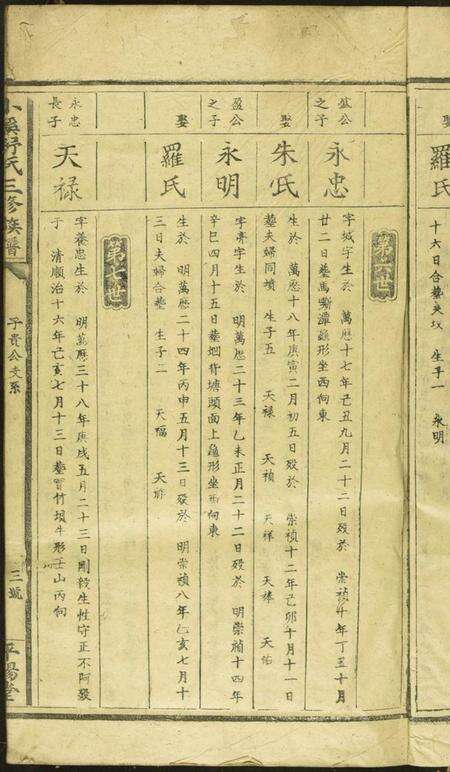 娶
羅氏
十六日合塟夫坟 生子一 永明
第六世
盆公之子
永忠
字城宇生於 萬曆十七年己丑九月二十二日殁於 崇禎十年丁丑十月
廿二日塟馬嘶潭龜形坐西向東
娶
朱氏
生於 萬曆十八年庚寅二月初五日殁於 崇禎十二年己卯十月十一日
塟夫婦同墳 生子五 天禄 天禎 天祥 天棒 天佑
盈公之子
永明
字亮宇生於 明萬曆二十三年乙未正月二十二日殁於 明崇禎十四年
辛巳四月十五日塟廻背塘頭面上龜形坐西向東
娶
羅氏
生於 明萬曆二十四年丙申五月十三日殁於 明崇禎八年乙亥七月十
三日夫婦合塟 生子二 天福 天
第七世
永忠長子
天禄
字養忠生於 明萬曆三十八年庚戌五月二十三日剛毅生性守正不阿殁
于 清順治十六年己亥七月十三日塟買竹垻牛形壬山丙向
小溪舒氏三修族譜
子貴公支系
三號
平陽堂